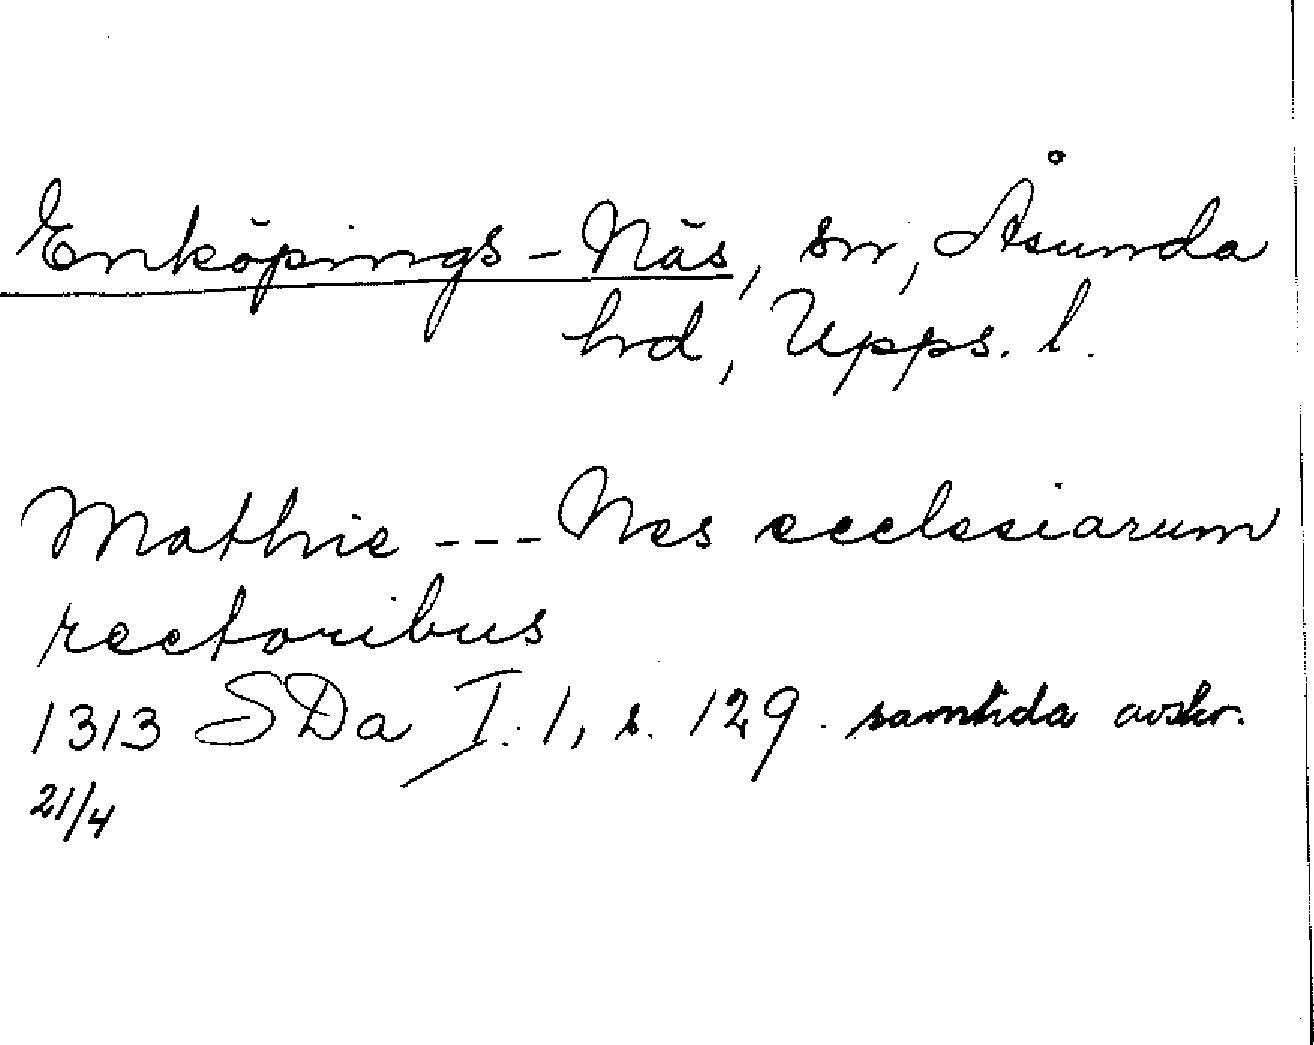 Enköpings-Näs, sn, Åsunda
hrd, Upps. l.
Mathie --- Nes ecclesiarum
rectoribus
1313 SDa I:1, s. 129. samtida avskr.
21/4